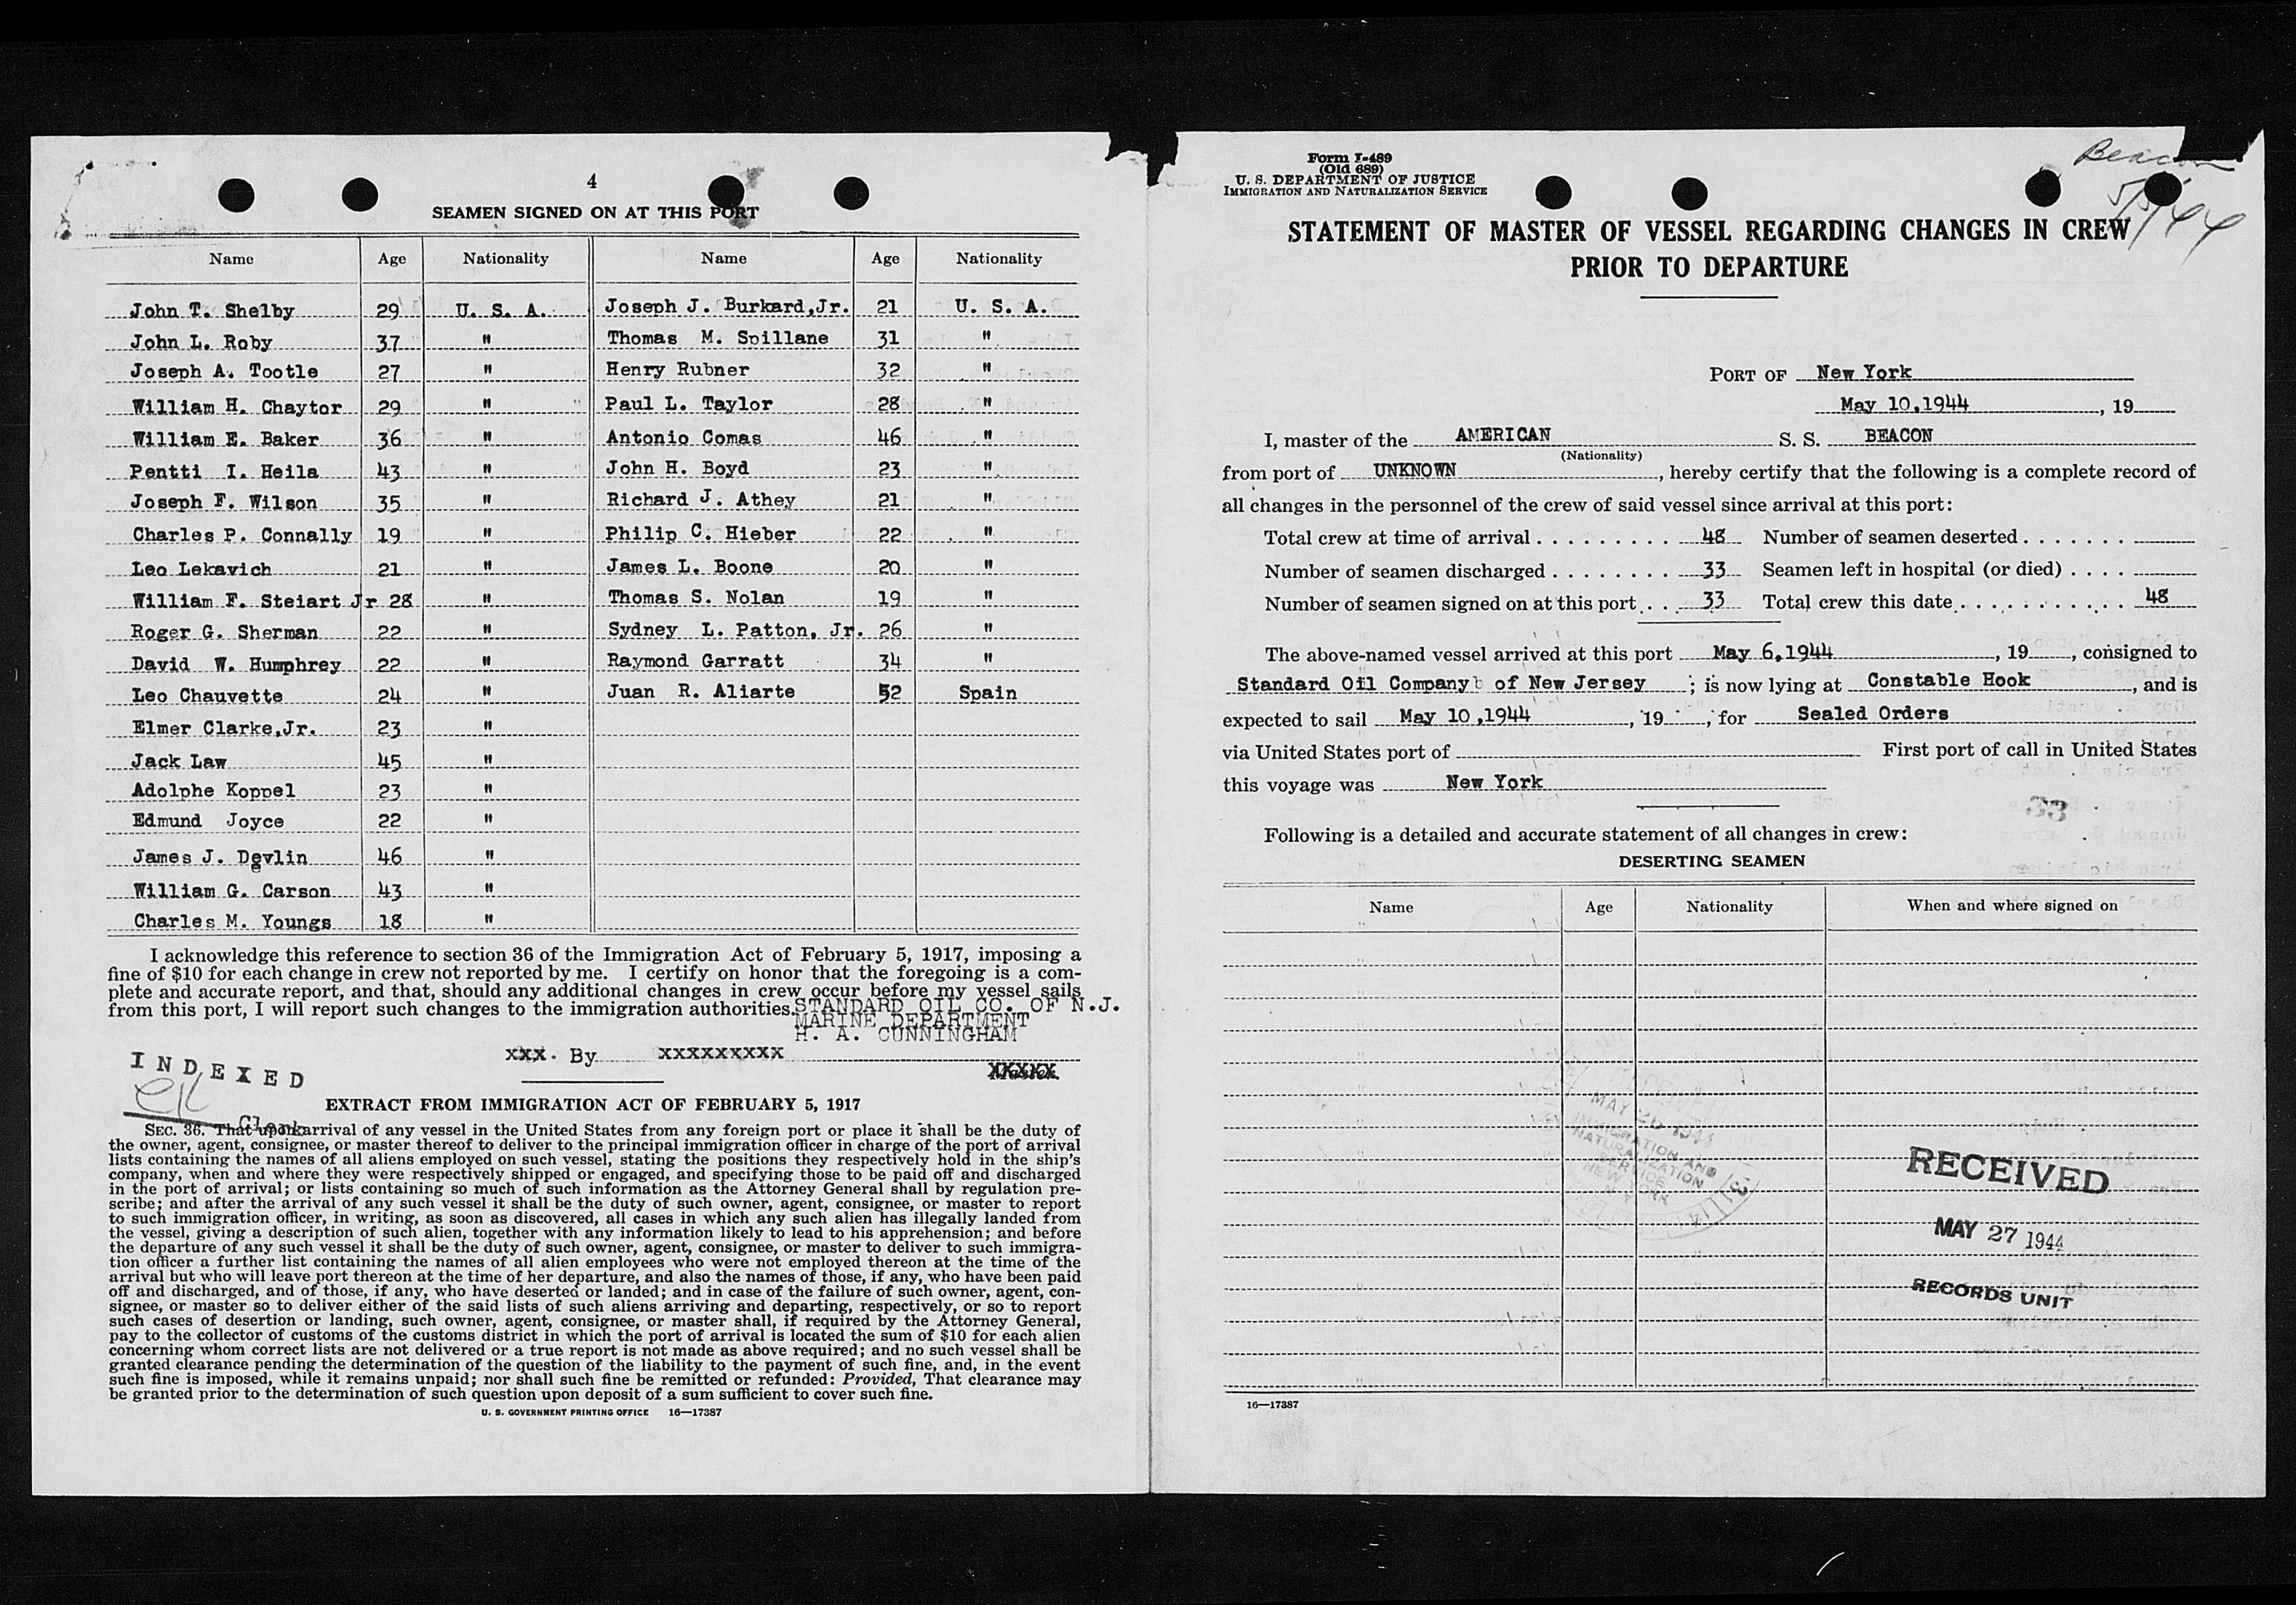 4
SEAMEN SIGNED ON AT THIS PORT
Name Age Nationality Name Age Nationality
John T. Shelby 29 U. S. A. Joseph J. Burkard,Jr. 21 U. S. A.
John L. Roby 37 " Thomas M. Spillane 31 "
Joseph A. Tootle 27 " Henry Rubner 32 "
William H. Chaytor 29 " Paul L. Taylor 28 "
William E. Baker 36 " Antonio Comas 46 "
Pentti I. Heila 43 " John H. Boyd 23 "
Joseph F. Wilson 35 " Richard J. Athey 21 "
Charles P. Connally 19 " Philip C. Hieber 22 "
Leo Lekavich 21 " James L. Boone 20 "
William F. Steiart Jr 28 " Thomas S. Nolan 19 "
Roger G. Sherman 22 " Sydney L. Patton, Jr. 26 "
David W. Humphrey 22 " Raymond Garratt 34 "
Leo Chauvette 24 " Juan R. Aliarte 52 Spain
Elmer Clarke,Jr. 23 "
Jack Law 45 "
Adolphe Koppel 23 "
Edmund Joyce 22 "
James J. Devlin 46 "
William G. Carson 43 "
Charles M. Youngs 18 "
I acknowledge this reference to section 36 of the Immigration Act of February 5, 1917, imposing a
fine of $10 for each change in crew not reported by me. I certify on honor that the foregoing is a com-
plete and accurate report, and that, should any additional changes in crew occur before my vessel sails
from this port, I will report such changes to the immigration authorities.
STANDARD OIL CO. OF N.J.
MARINE DEPARTMENT
H. A. CUNNINGHAM
xxx. By xxxxxxxxx
XXXXX
INDEXED
EK
Clerk
EXTRACT FROM IMMIGRATION ACT OF FEBRUARY 5, 1917
SEC. 36. That upon arrival of any vessel in the United States from any foreign port or place it shall be the duty of
the owner, agent, consignee, or master thereof to deliver to the principal immigration officer in charge of the port of arrival
lists containing the names of all aliens employed on such vessel, stating the positions they respectively hold in the ship's
company, when and where they were respectively shipped or engaged, and specifying those to be paid off and discharged
in the port of arrival; or lists containing so much of such information as the Attorney General shall by regulation pre-
scribe; and after the arrival of any such vessel it shall be the duty of such owner, agent, consignee, or master to report
to such immigration officer, in writing, as soon as discovered, all cases in which any such alien has illegally landed from
the vessel, giving a description of such alien, together with any information likely to lead to his apprehension; and before
the departure of any such vessel it shall be the duty of such owner, agent, consignee, or master to deliver to such immigra-
tion officer a further list containing the names of all alien employees who were not employed thereon at the time of the
arrival but who will leave port thereon at the time of her departure, and also the names of those, if any, who have been paid
off and discharged, and of those, if any, who have deserted or landed; and in case of the failure of such owner, agent, con-
signee, or master so to deliver either of the said lists of such aliens arriving and departing, respectively, or so to report
such cases of desertion or landing, such owner, agent, consignee, or master shall, if required by the Attorney General,
pay to the collector of customs of the customs district in which the port of arrival is located the sum of $10 for each alien
concerning whom correct lists are not delivered or a true report is not made as above required; and no such vessel shall be
granted clearance pending the determination of the question of the liability to the payment of such fine, and, in the event
such fine is imposed, while it remains unpaid; nor shall such fine be remitted or refunded: Provided, That clearance may
be granted prior to the determination of such question upon deposit of a sum sufficient to cover such fine.
U. S. GOVERNMENT PRINTING OFFICE 16—17387
Form I-489
(Old 689)
U. S. DEPARTMENT OF JUSTICE
IMMIGRATION AND NATURALIZATION SERVICE
Beacon
5/5/44
STATEMENT OF MASTER OF VESSEL REGARDING CHANGES IN CREW
PRIOR TO DEPARTURE
PORT OF New York
May 10,1944, 19
I, master of the AMERICAN S. S. BEACON
(Nationality)
from port of UNKNOWN, hereby certify that the following is a complete record of
all changes in the personnel of the crew of said vessel since arrival at this port:
Total crew at time of arrival 48 Number of seamen deserted
Number of seamen discharged 33 Seamen left in hospital (or died)
Number of seamen signed on at this port 33 Total crew this date 48
The above-named vessel arrived at this port May 6,1944, 19, consigned to
Standard Oil Company of New Jersey; is now lying at Constable Hook, and is
expected to sail May 10,1944, 19, for Sealed Orders
via United States port of First port of call in United States
this voyage was New York
33
Following is a detailed and accurate statement of all changes in crew:
DESERTING SEAMEN
Name Age Nationality When and where signed on
MAY 26 1944
IMMIGRATION AND
NATURALIZATION
SERVICE
NEW YORK
RECEIVED
MAY 27 1944
RECORDS UNIT
16—17387